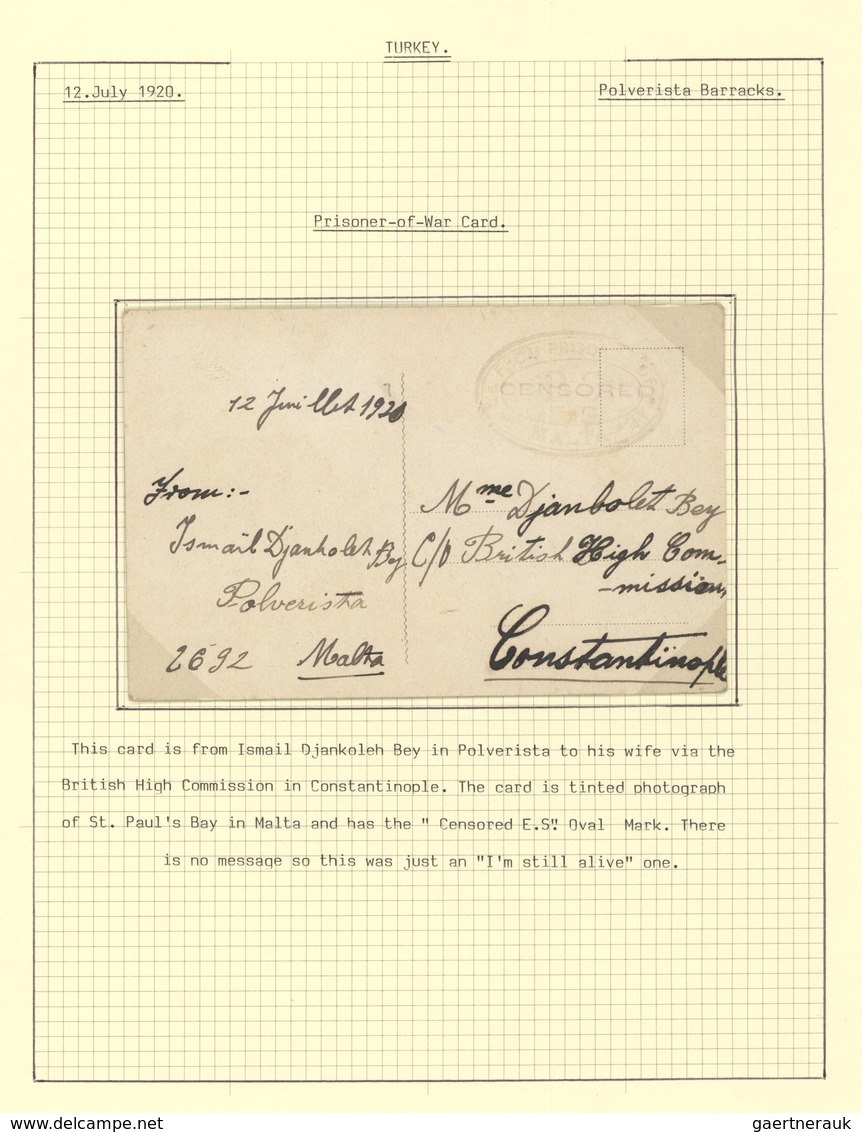 TURKEY.
12.July 1920.
Polverista Barracks.
Prisoner-of-War Card.
FROM PRISO
CENSORED
MALTA
12 Juillet 1920
From:-
Ismaïl Djanbolet Bey
Polverista
2692 Malta
Mme Djanbolet Bey
C/O British High Com-
-mission,
Constantinople
This card is from Ismail Djankoleh Bey in Polverista to his wife via the
British High Commission in Constantinople. The card is tinted photograph
of St. Paul's Bay in Malta and has the " Censored E.S". Oval Mark. There
is no message so this was just an "I'm still alive" one.
gaertnerauk